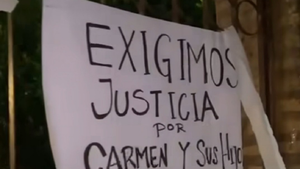 EXIGIMOS
JUSTICIA
POR
CARMEN Y SUS